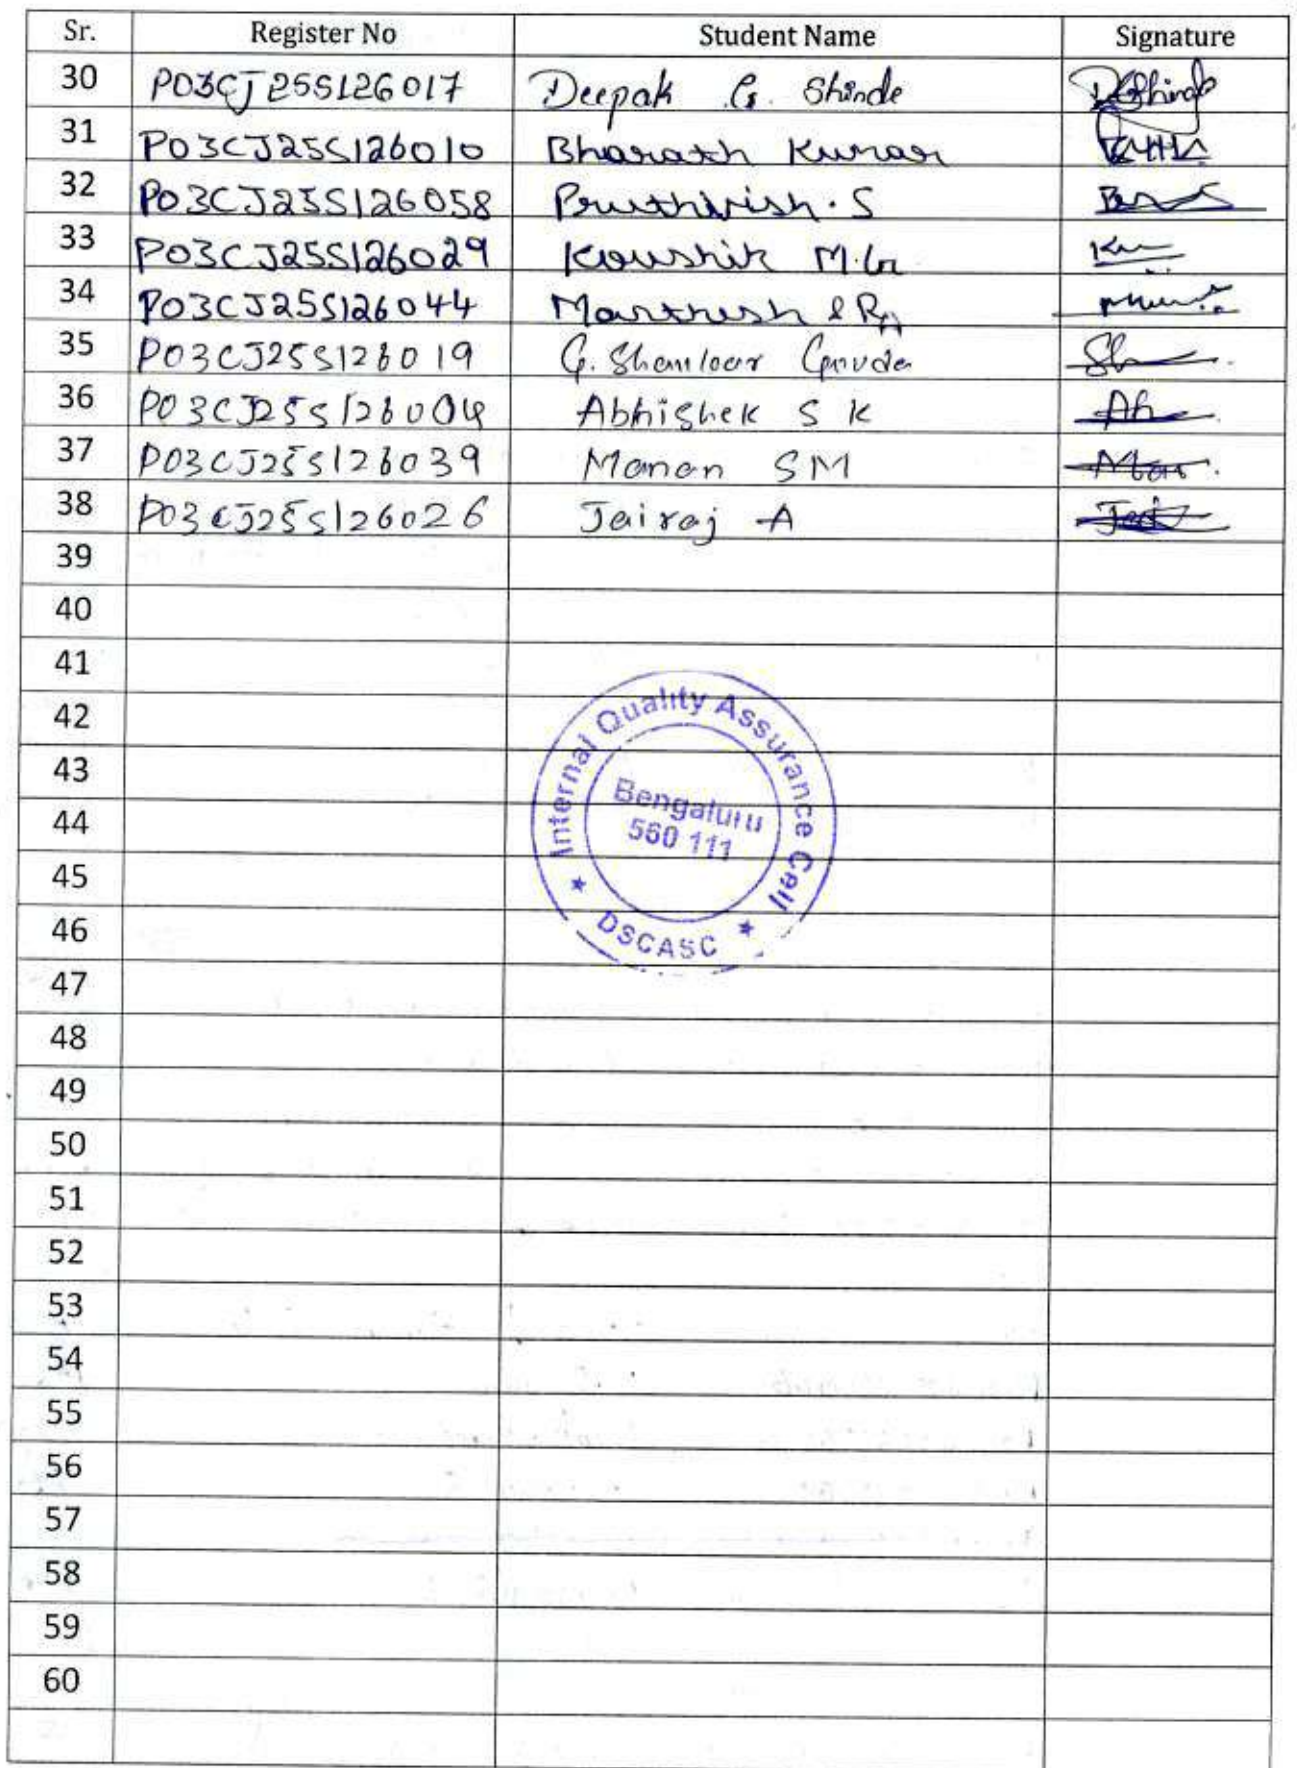 Sr. Register No Student Name Signature
30 P03CJ25S126017 Deepak G. Shinde DGShinde
31 P03CJ25S126010 Bharath Kumar
32 P03CJ25S126058 Pruthvish.S
33 P03CJ25S126029 Koushik M.G
34 P03CJ25S126044
35 P03CJ25S126019 G. Shankar Gowda Sh
36 P03CJ25S126004 Abhishek S K Ab
37 P03CJ25S126039 Manan SM Man
38 P03CJ25S126026 Jairaj A Jai
39
40
41
42
43
44
45
46
47
48
49
50
51
52
53
54
55
56
57
58
59
60
Internal Quality Assurance Cell
Bengaluru
560 111
★ DSCASC ★